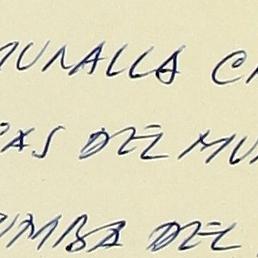 MURALLA C
AS DEL MU
UMBA DEL